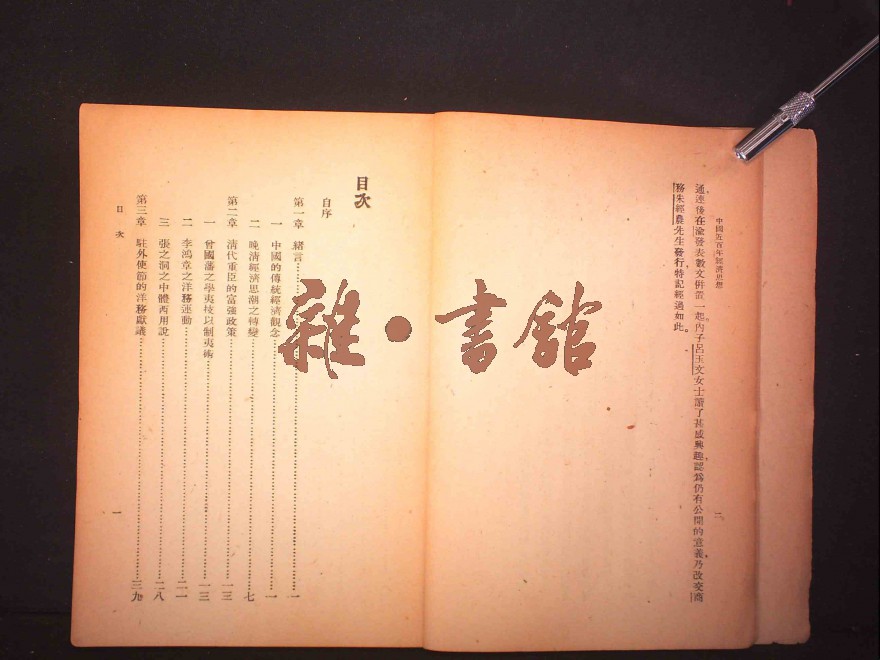 中國近百年經濟思想
通達後在渝發表數文併置一起內子呂玉文女士讀了甚感興趣認爲仍有公開的意義乃改交商
務朱經農先生發行特記經過如此。
二
目次
自序
第一章 緒言 一
一 中國的傳統經濟觀念 一
二 晚清經濟思潮之轉變 七
第二章 清代重臣的富強政策 一三
一 曾國藩之學夷技以制夷術 一三
二 李鴻章之洋務運動 二一
三 張之洞之中體西用說 二八
第三章 駐外使節的洋務獻議 三九
目次
一
雜●書館